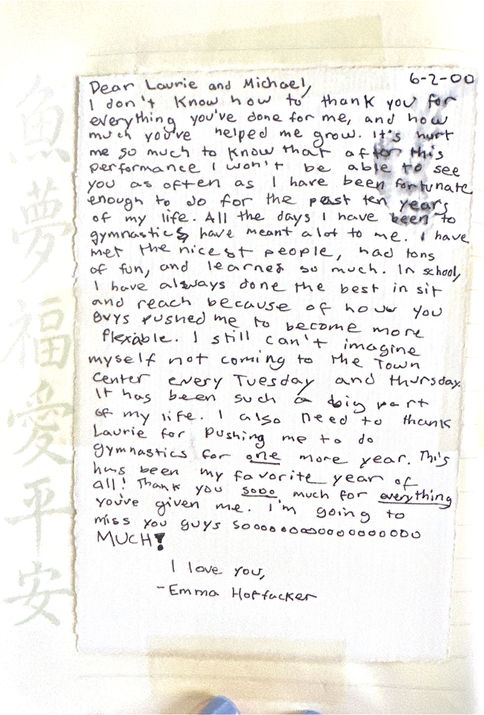 魚
夢
福
愛
平
安
6-2-00
Dear Laurie and Michael,
I don't know how to thank you for
everything you've done for me, and how
much you've helped me grow. It's hurt
me so much to know that after this
performance I won't be able to see
you as often as I have been fortunate
enough to do for the past ten years
of my life. All the days I have been to
gymnastics have meant a lot to me. I have
met the nicest people, had tons
of fun, and learned so much. In school,
I have always done the best in sit
and reach because of how you
guys pushed me to become more
flexable. I still can't imagine
myself not coming to the Town
Center every Tuesday and Thursday.
It has been such a big part
of my life. I also need to thank
Laurie for pushing me to do
gymnastics for one more year. This
has been my favorite year of
all! Thank you sooo much for everything
you've given me. I'm going to
miss you guys soooooooooooooooooo
MUCH!
I love you,
-Emma